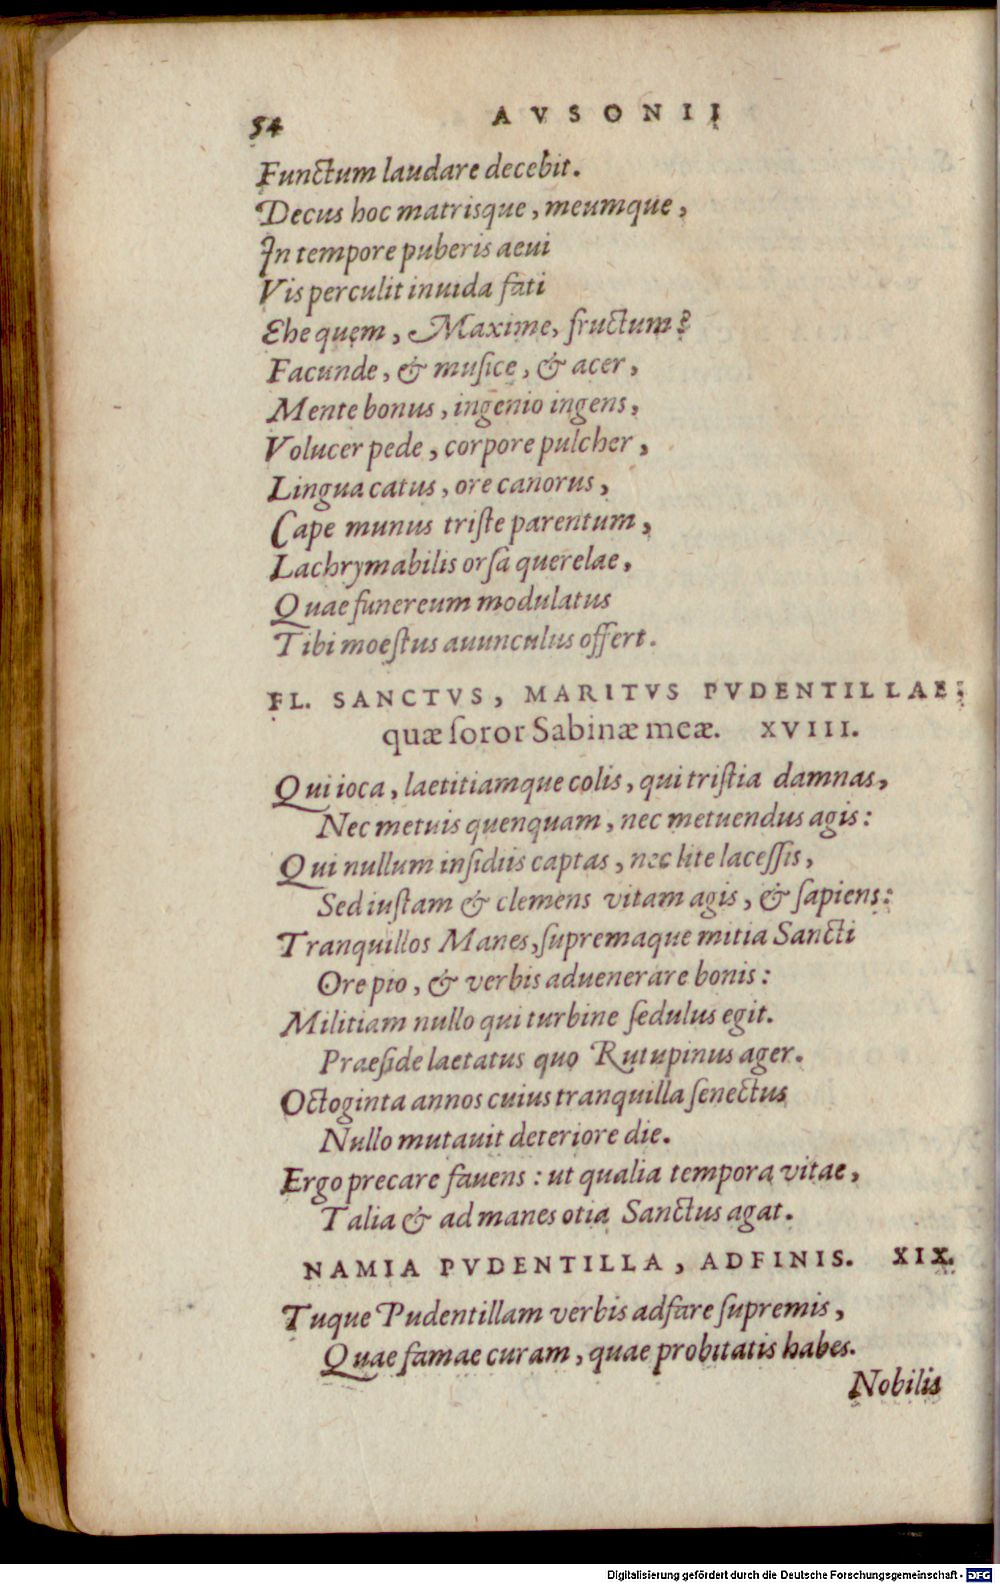 54 AVSONII
Functum laudare decebit.
Decus hoc matrisque, meumque,
In tempore puberis aeui
Vis perculit inuida fati
Ehe quem, Maxime, fructum?
Facunde, & musice, & acer,
Mente bonus, ingenio ingens,
Volucer pede, corpore pulcher,
Lingua catus, ore canorus,
Cape munus triste parentum,
Lachrymabilis orsa querelae,
Quae funereum modulatus
Tibi moestus auunculus offert.
FL. SANCTVS, MARITVS PVDENTILLAE;
quæ soror Sabinæ meæ. XVIII.
Qui ioca, laetitiamque colis, qui tristia damnas,
Nec metuis quenquam, nec metuendus agis:
Qui nullum insidiis captas, nec lite lacessis,
Sed iustam & clemens vitam agis, & sapiens:
Tranquillos Manes, supremaque mitia Sancti
Ore pio, & verbis aduenerare bonis:
Militiam nullo qui turbine sedulus egit.
Praeside laetatus quo Rutupinus ager.
Octoginta annos cuius tranquilla senectus
Nullo mutauit deteriore die.
Ergo precare fauens: ut qualia tempora vitae,
Talia & ad manes otia Sanctus agat.
NAMIA PVDENTILLA, ADFINIS. XIX.
Tuque Pudentillam verbis adfare supremis,
Quae famae curam, quae probitatis habes.
Nobilis
Digitalisierung gefördert durch die Deutsche Forschungsgemeinschaft - DFG